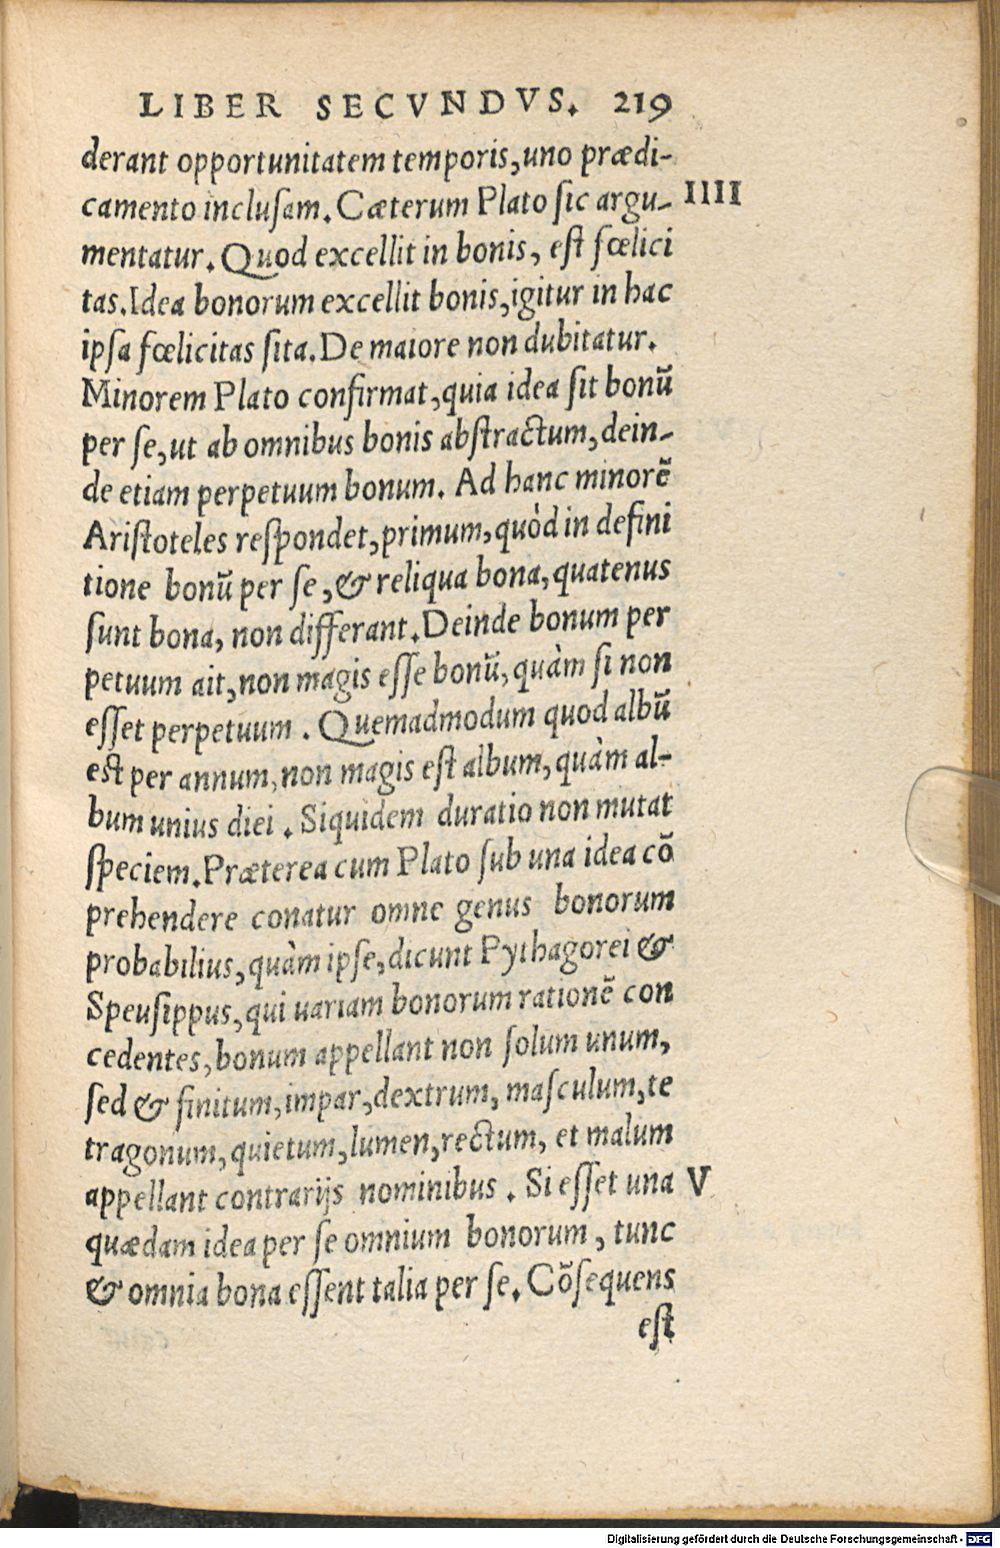 LIBER SECVNDVS. 219
derant opportunitatem temporis, uno prædi-
camento inclusam. Cæterum Plato sic argu- IIII
mentatur. Quod excellit in bonis, est fœlici
tas. Idea bonorum excellit bonis, igitur in hac
ipsa fœlicitas sita. De maiore non dubitatur.
Minorem Plato confirmat, quia idea sit bonū
per se, ut ab omnibus bonis abstractum, dein-
de etiam perpetuum bonum. Ad hanc minorē
Aristoteles respondet, primum, quòd in defini
tione bonū per se, & reliqua bona, quatenus
sunt bona, non differant. Deinde bonum per
petuum ait, non magis esse bonū, quàm si non
esset perpetuum. Quemadmodum quod albū
est per annum, non magis est album, quàm al-
bum unius diei. Siquidem duratio non mutat
speciem. Præterea cum Plato sub una idea cō
prehendere conatur omne genus bonorum
probabilius, quàm ipse, dicunt Pythagorei &
Speusippus, qui uariam bonorum rationē con
cedentes, bonum appellant non solum unum,
sed & finitum, impar, dextrum, masculum, te
tragonum, quietum, lumen, rectum, et malum
appellant contrarijs nominibus. Si esset una V
quædam idea per se omnium bonorum, tunc
& omnia bona essent talia per se. Cōsequens
est
Digitalisierung gefördert durch die Deutsche Forschungsgemeinschaft - DFG